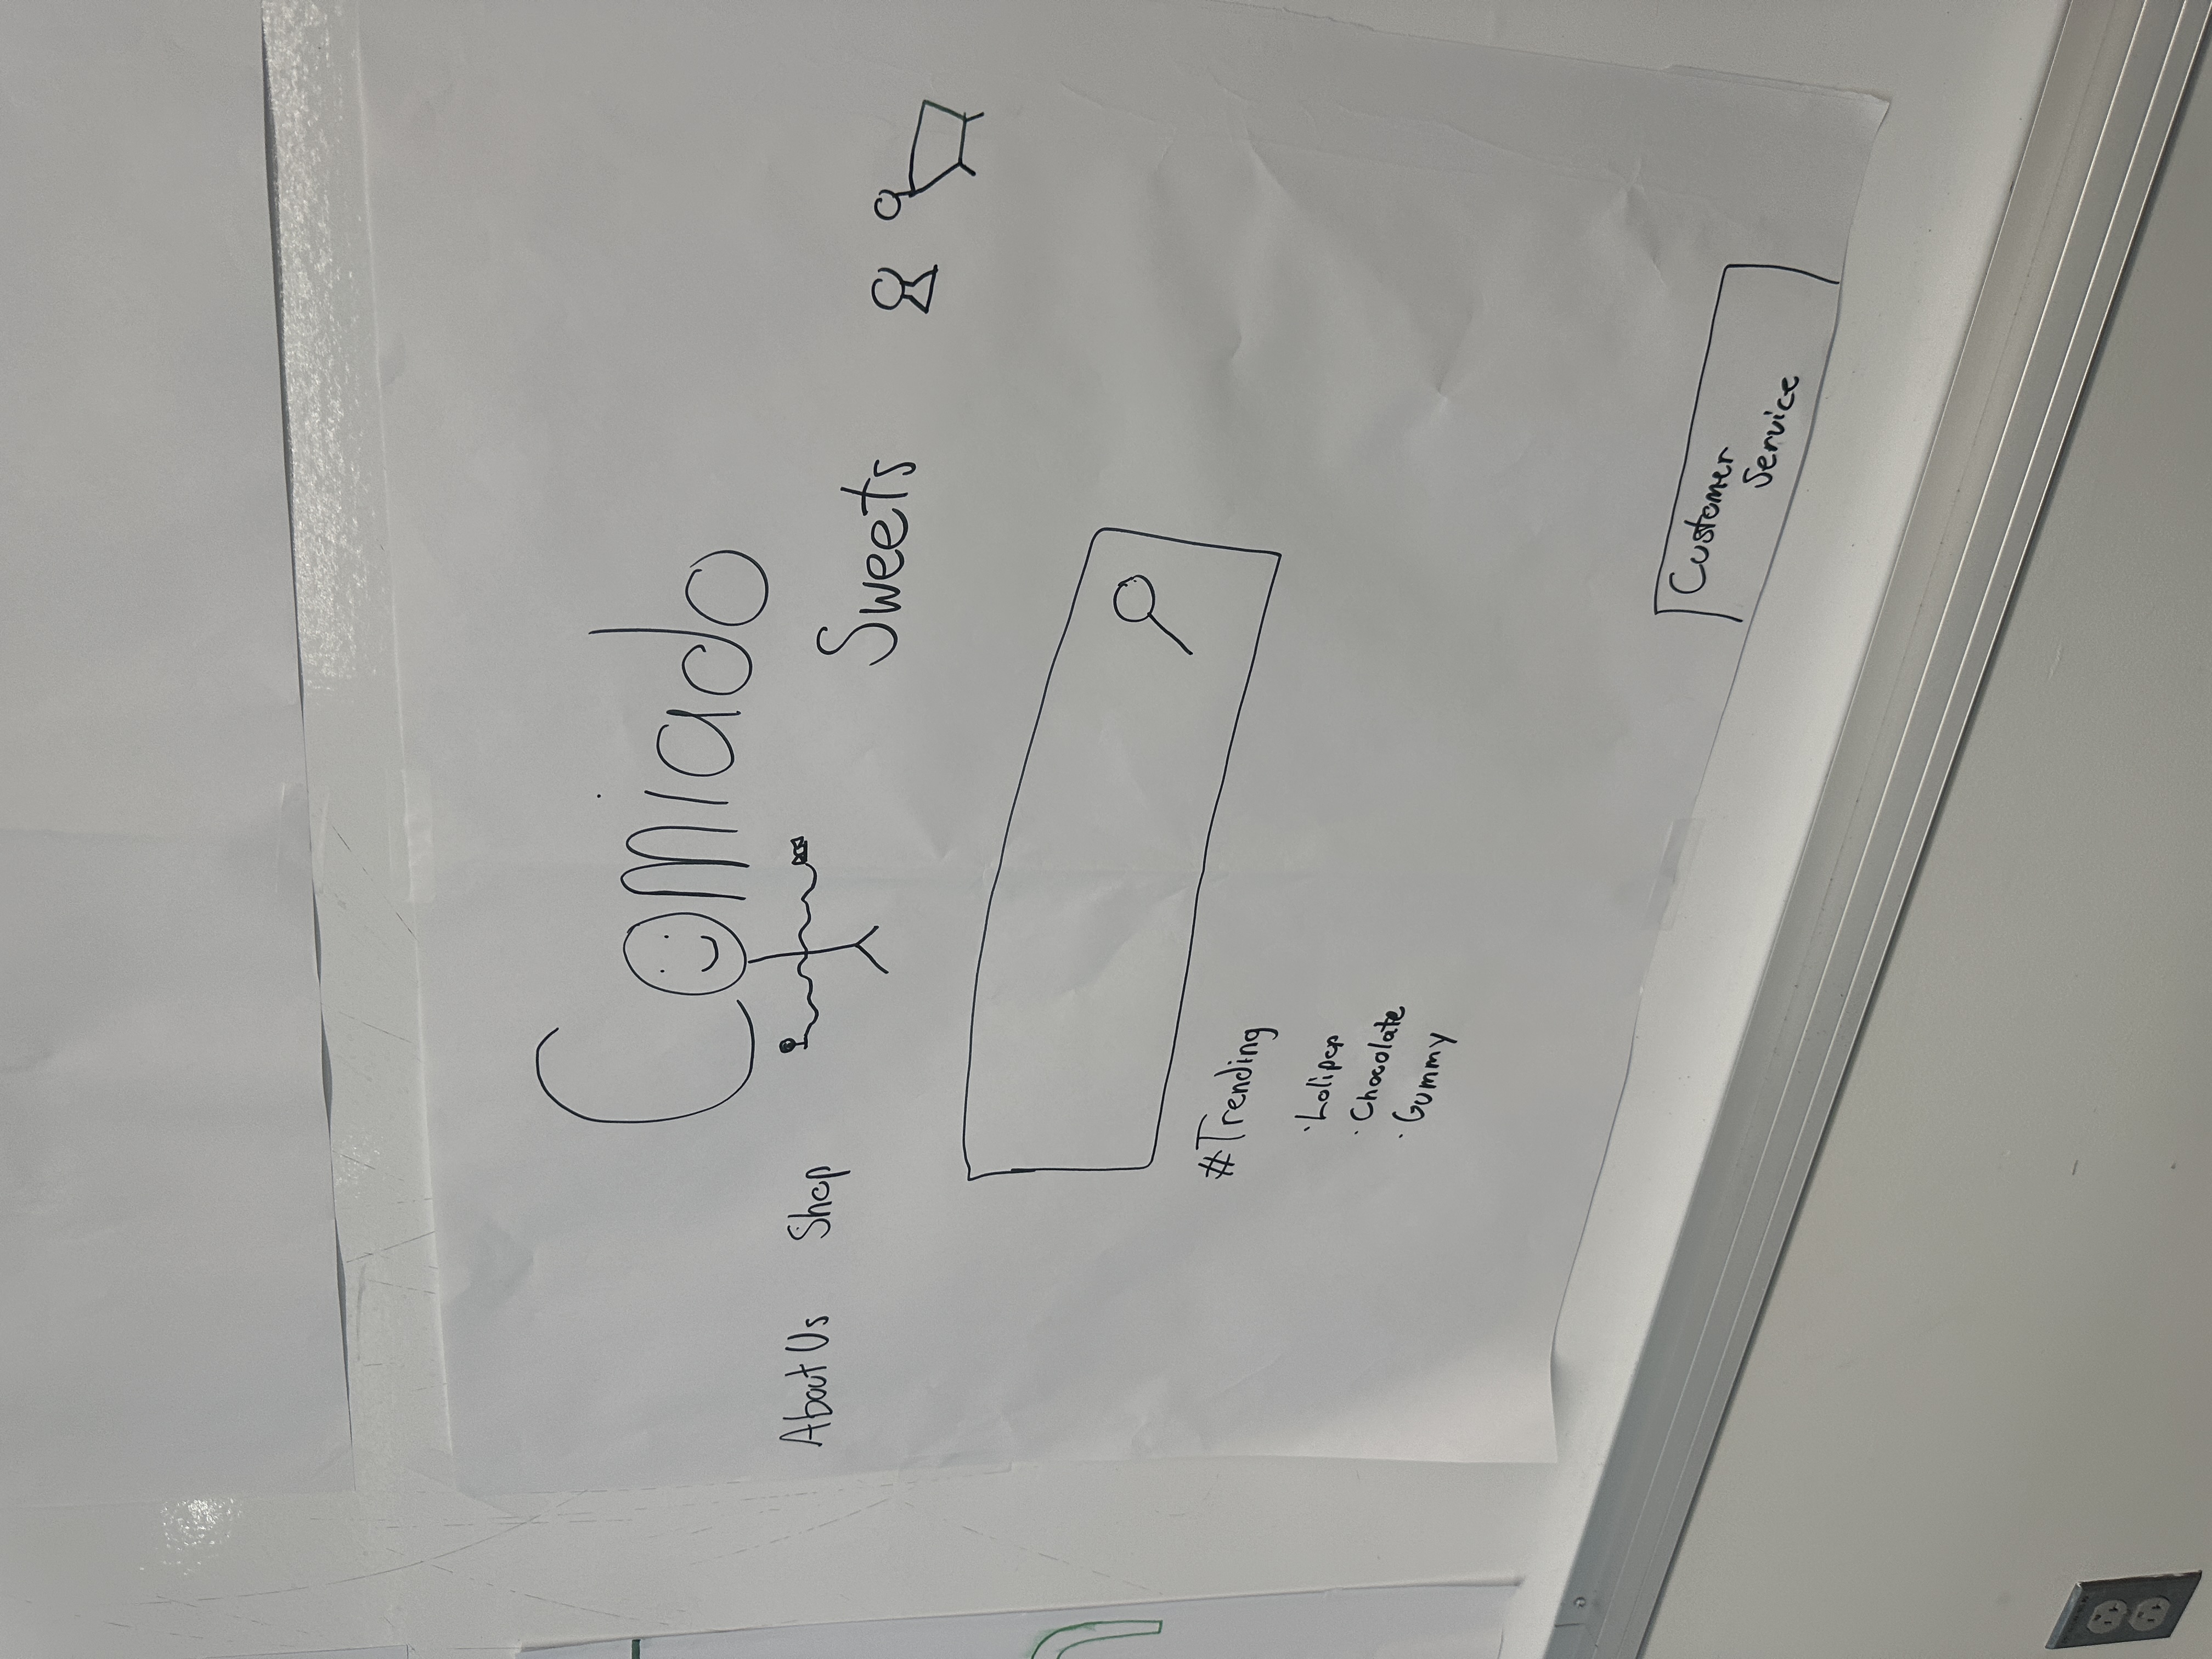 Comiado
About Us Shop
Sweets
#Trending
· Lolipop
· Chocolate
· Gummy
Customer
Service